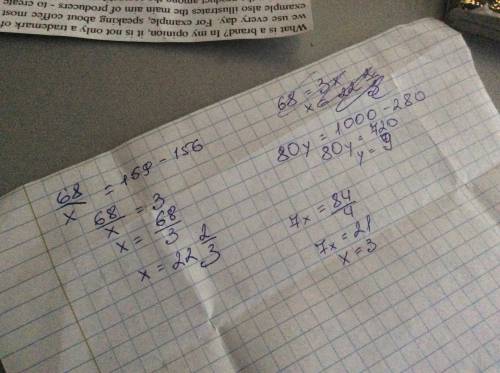 What is a brand? In my opinion, it is not only a trademark of
we use every day. For example, speaking about coffee most
example also illustrates the main aim of producers - to create
68/x = 159 - 156
68/x = 3
x = 68/3
x = 22 2/3
68 = 3x
80y = 1000 - 280
80y = 720
y = 9
7x = 84/4
7x = 21
x = 3